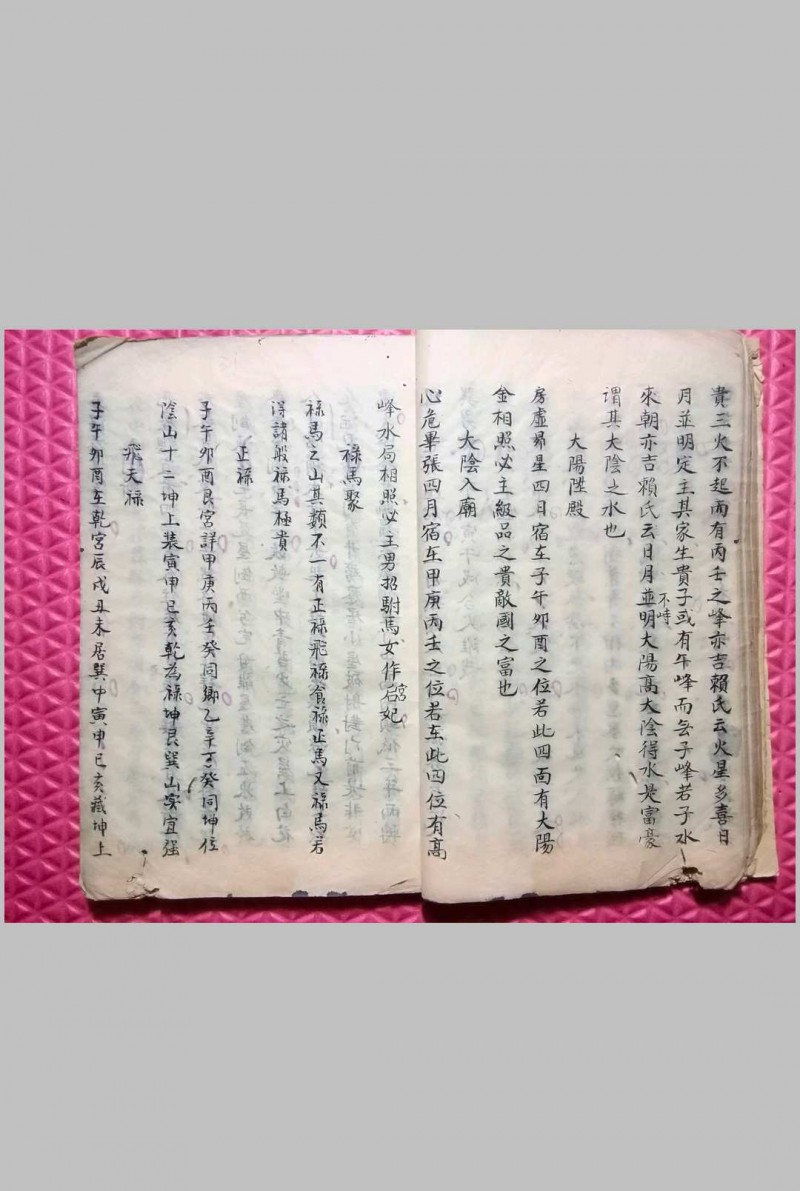 貴三火不起而有丙壬之峰亦吉賴氏云火星多喜日
月並明定主其家生貴子或有午峰而無子峰若子水
來朝亦吉賴氏云日月並明大陽高大陰得水是富豪
不時
謂其大陰之水也
大陽陞殿
房虛昴星四日宿在子午卯酉之位若此四面有大陽
金相照必主級品之貴敵國之富也
大陰入廟
心危畢張四月宿在甲庚丙壬之位若在此四位有高
峰水局相照必主男招駙馬女作后妃
宮
祿馬聚
祿馬之山其類不一有正祿飛祿食祿正馬又祿馬若
得諸般祿馬極貴
正祿
子午卯酉艮宮詳甲庚丙壬癸同鄉乙辛丁癸同坤位
陰山十二坤上裝寅申巳亥乾為祿坤艮巽山实宜强
飛天祿
子午卯酉在乾宮辰戌丑未居巽中寅申巳亥藏坤上